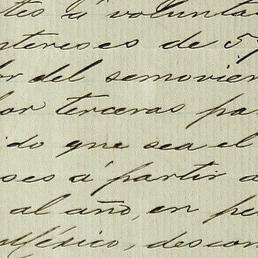 tes á volunta
ntereses de 5%
or del semovien
por terceras pa
ido que sea el
ses á partir a
al año, en pe
México, descon